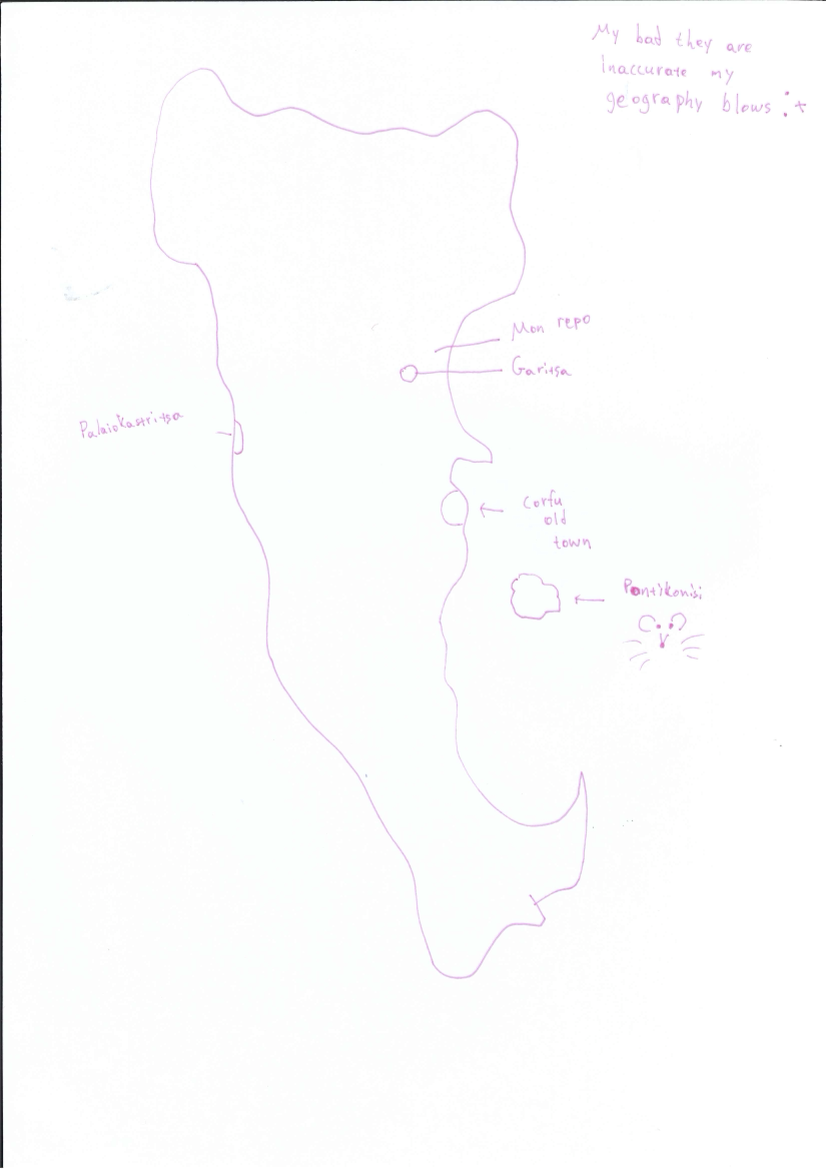 My bad they are
inaccurate my
geography blows :+
Mon repo
Garitsa
Palaiokastritsa
Corfu
old
town
Pontikonisi